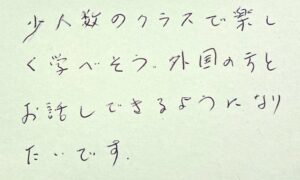 少人数のクラスで楽し
く学べそう。外国の方と
お話しできるようになり
たいです.